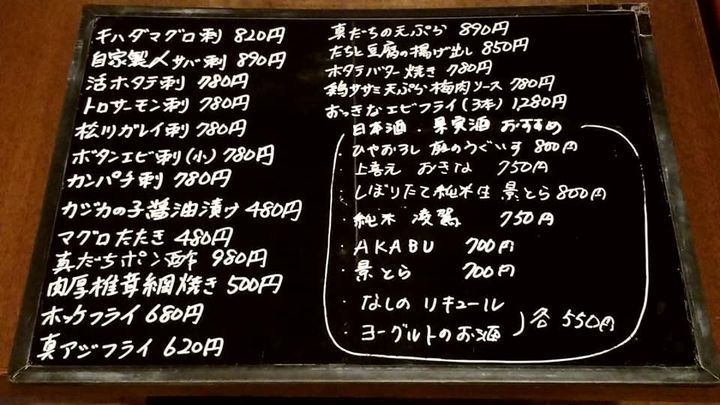 キハダマグロ刺 820円
自家製〆サバ刺 890円
活ホタテ刺 780円
トロサーモン刺 780円
松川ガレイ刺 780円
ボタンエビ刺(小) 780円
カンパチ刺 780円
カジカの子醤油漬け 480円
マグロたたき 480円
真だちポン酢 980円
肉厚椎茸網焼き 500円
ホッケフライ 680円
真アジフライ 620円
真だちの天ぷら 890円
たちと豆腐の揚げ出し 850円
ホタテバター焼き 780円
鶏ササミ天ぷら梅肉ソース 780円
おっきなエビフライ(3本) 1280円
日本酒・果実酒 おすすめ
・ひやおろし 庭のうぐいす 800円
・上喜元 おきな 750円
・しぼりたて純米生 景とら 800円
・純米 凌駕 750円
・AKABU 700円
・景とら 700円
・なしのリキュール
・ヨーグルトのお酒 ) 各 550円